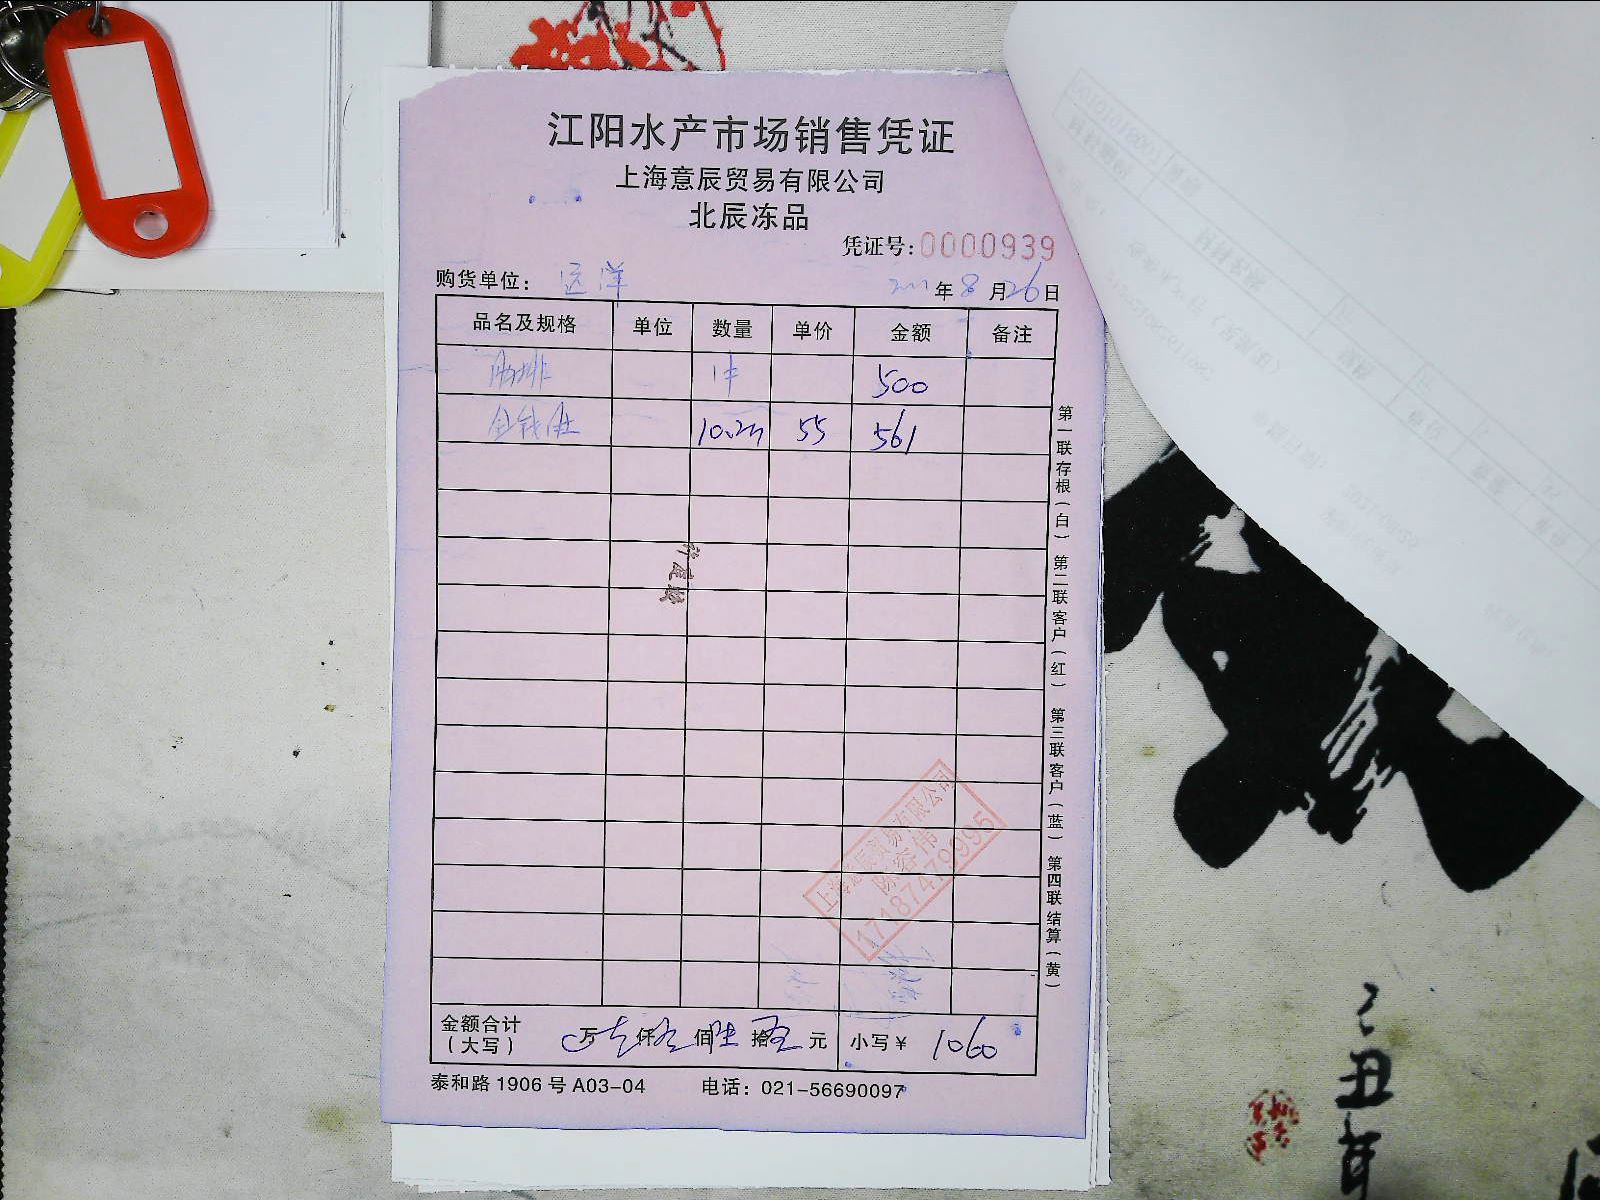 江阳水产市场销售凭证
上海意辰贸易有限公司
北辰冻品
凭证号:0000939
购货单位: 远洋 年 8 月 26 日
品名及规格 单位 数量 单价 金额 备注
1件 500
金钱肚 10.2 55 561
许庭
上海意辰贸易有限公司
17187479995
金额合计 万 仟 佰 拾 元 小写¥ 1060
(大写)
泰和路1906号A03-04 电话: 021-56690097
第一联存根(白) 第二联客户(红) 第三联客户(蓝) 第四联结算(黄)
己丑年